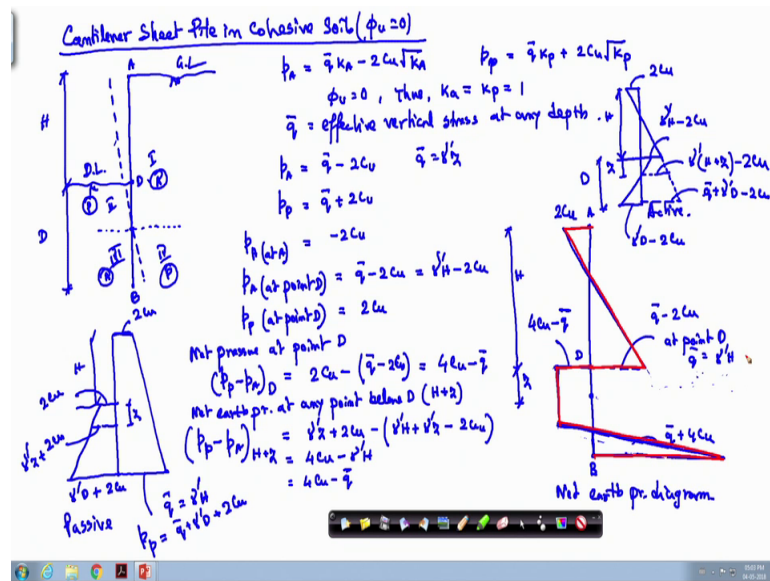 Cantilever Sheet Pile in Cohesive Soil (φu = 0)
A
G.L
H
D.L.
D
I
A
P
II
D
III
A
IV
P
B
p_A = q̄ K_A - 2Cu√K_A
p_p = q̄ Kp + 2Cu√Kp
φu = 0, Thus, Ka = Kp = 1
q̄ = effective vertical stress at any depth.
p_A = q̄ - 2Cu
q̄ = γ'z
p_p = q̄ + 2Cu
p_A (at A) = -2Cu
p_A (at point D) = q̄ - 2Cu = γ'H - 2Cu
p_p (at point D) = 2Cu
Net pressure at point D
(p_p - p_A)_D = 2Cu - (q̄ - 2Cu) = 4Cu - q̄
Net earth pr. at any point below D (H+z)
(p_p - p_A)_H+z = γ'z + 2Cu - (γ'H + γ'z - 2Cu)
= 4Cu - γ'H
= 4Cu - q̄
2Cu
H
2Cu
z
γ'z + 2Cu
γ'D + 2Cu
Passive
q̄ = γ'H
p_p = q̄ + γ'D + 2Cu
2Cu
H
γ'H - 2Cu
z
D
γ'(H+z) - 2Cu
q̄ + γ'D - 2Cu
Active.
γ'D - 2Cu
2Cu
A
H
4Cu - q̄
D
q̄ - 2Cu
at point D
q̄ = γ'H
z
q̄ + 4Cu
B
Net earth pr. diagram
05:03 PM
04-05-2018